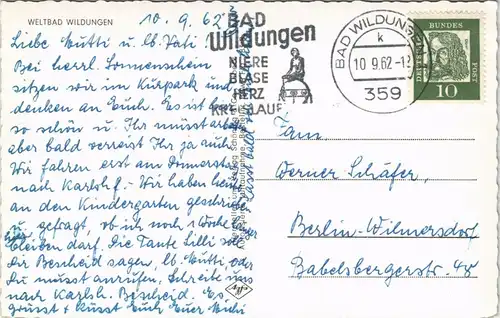 WELTBAD WILDUNGEN
10.9.62
Liebe Mutti u. lb. Vati!
Bei herrl. Sonnenschein
sitzen wir im Kurpark und
denken an Euch. Es ist hier
so schön u. Ihr müsst arbeiten
aber bald verreist Ihr ja auch.
Wir fahren erst am Donnerstag
nach Karlsh. Wir haben heute
an den Kindergarten geschrieben
u. gefragt, ob ich noch 1 Woche
hier bleiben darf. Die Tante Lilli soll
dir Bescheid sagen, lb. Mutti, oder
Du musst anrufen, Schreibe uns
nach Karlsh. Bescheid. Es
grüsst & küsst Euch Euer
BAD
Wildungen
NIERE
BLASE
HERZ
KREISLAUF
BAD WILDUNGEN
k
10.9.62
359
DEUTSCHE
BUNDES
POST
10
Fam.
Werner Schäfer,
Berlin-Wilmersdorf
Babelsbergerstr. 48
Agfa